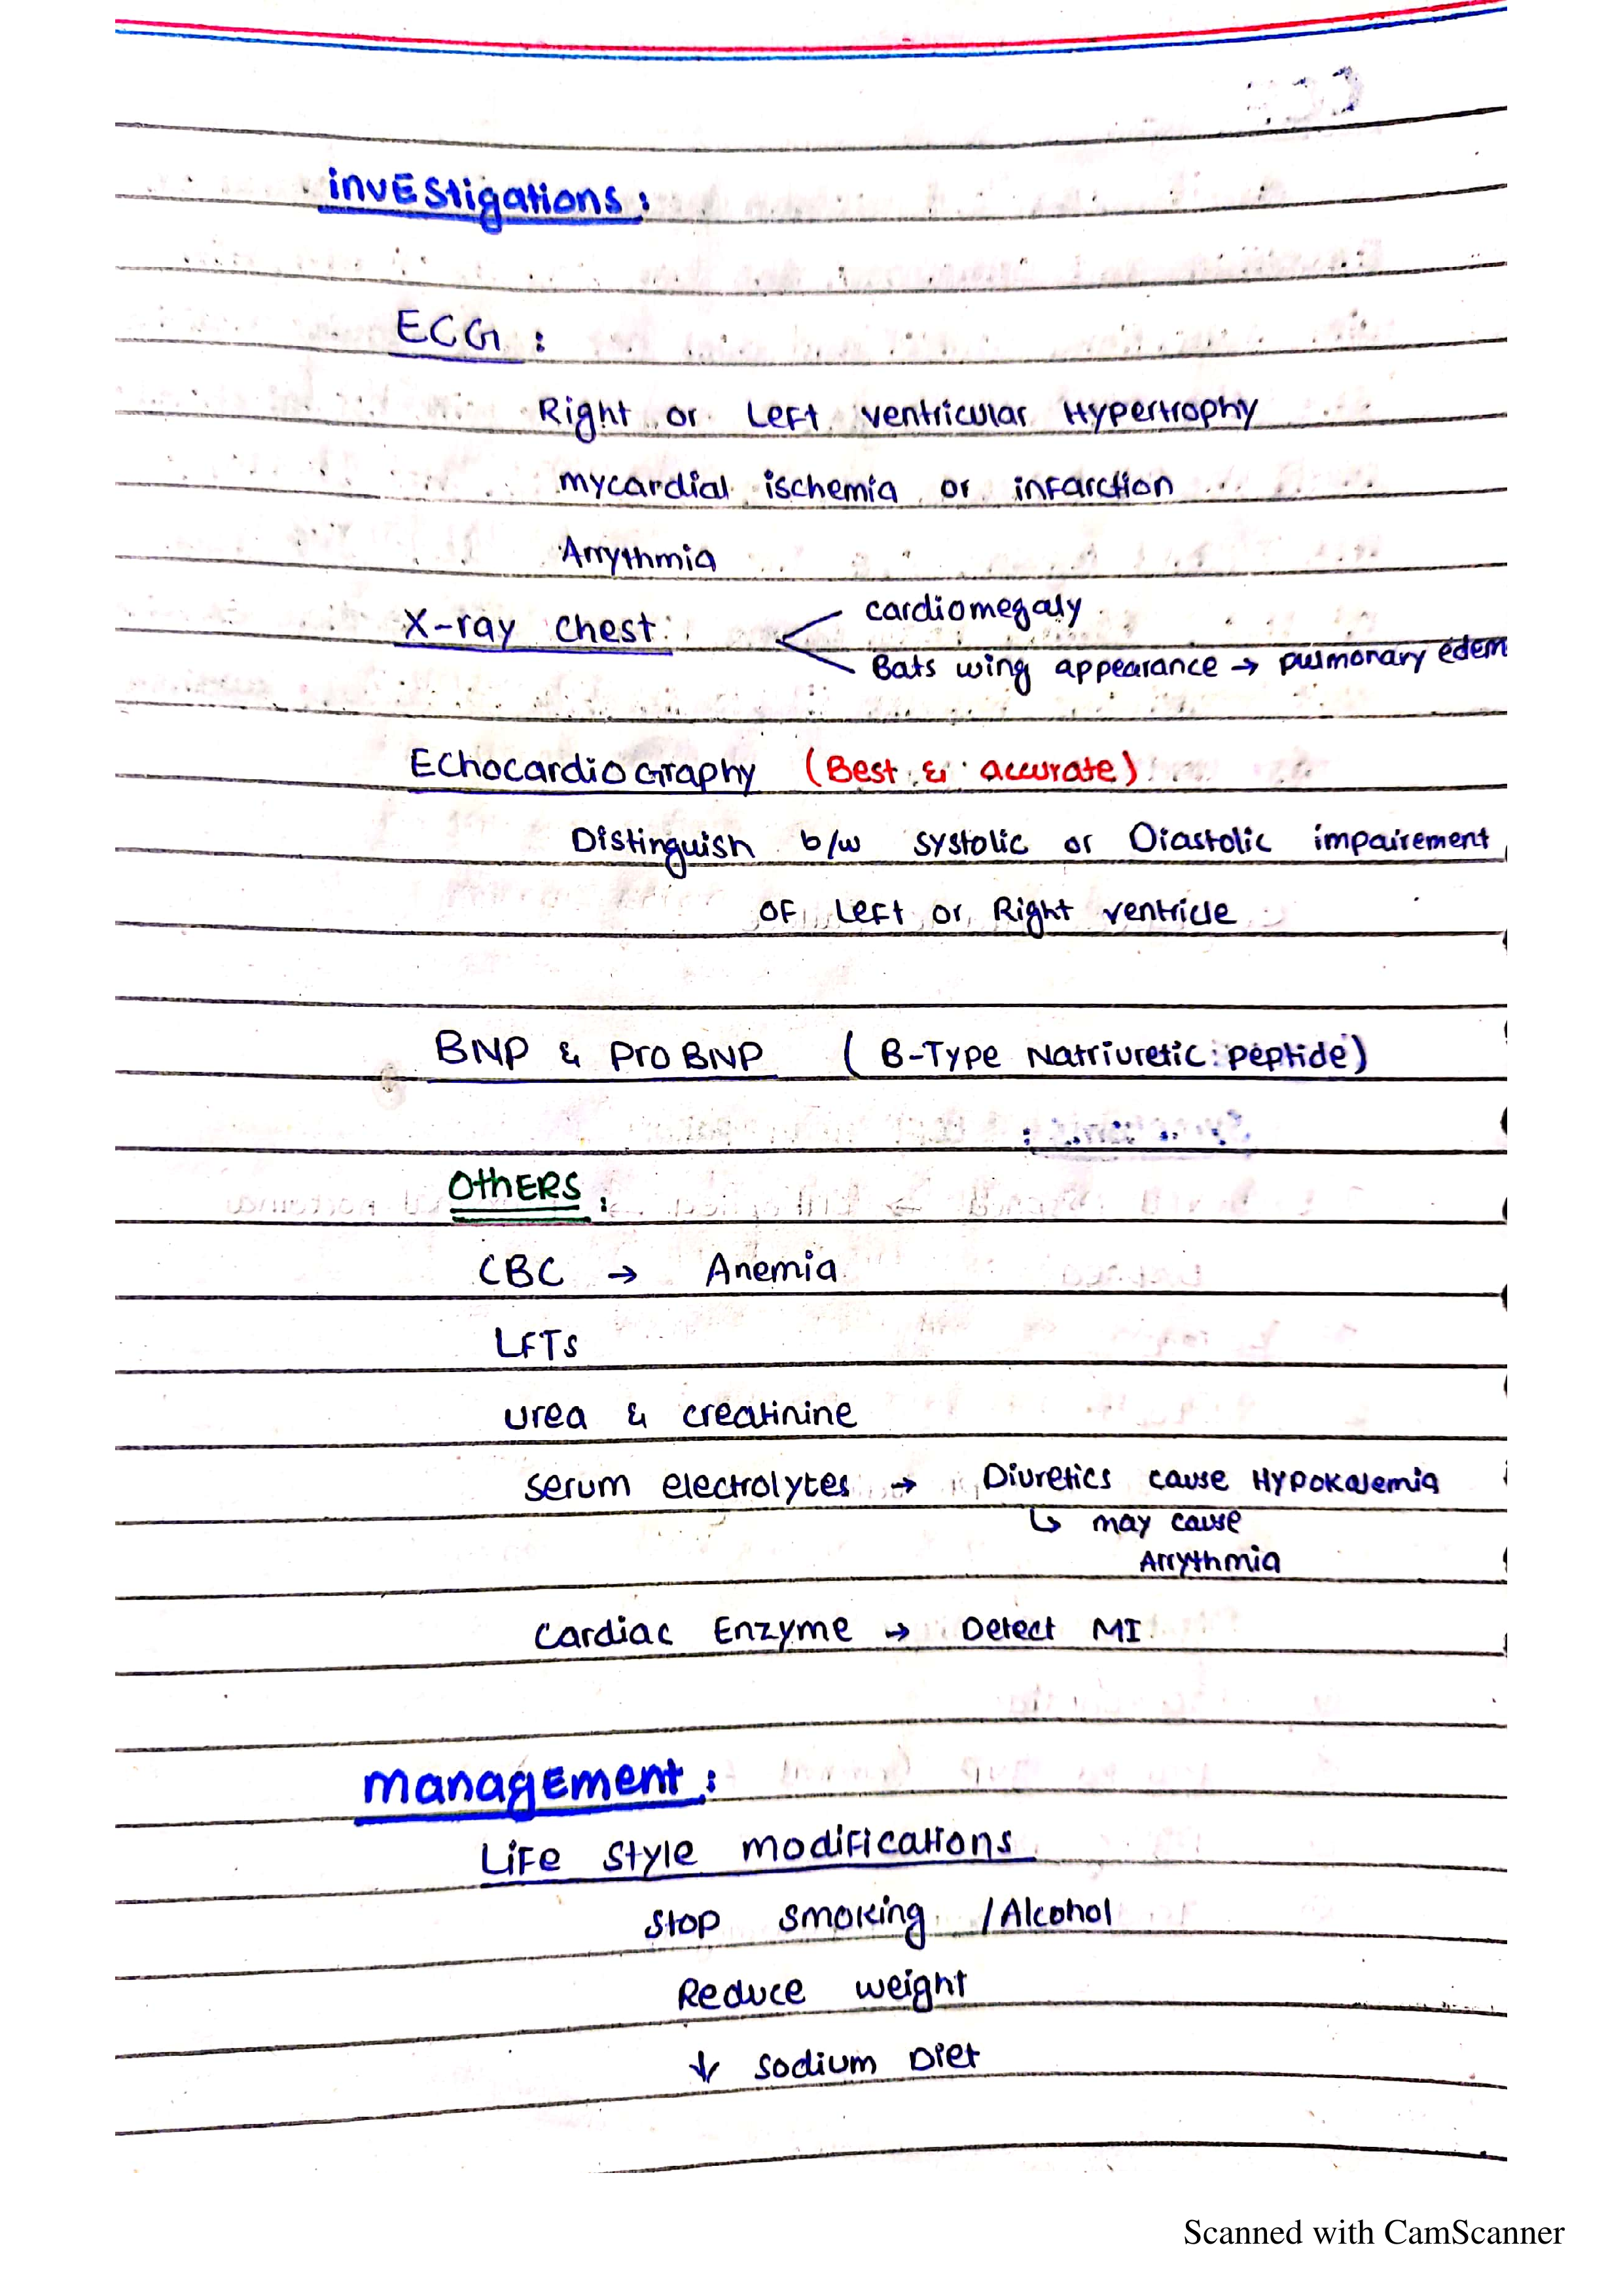 invEStigations:
ECG:
Right or Left ventricular Hypertrophy
mycardial ischemia or infarction
Arrythmia
X-ray chest
cardiomegaly
Bats wing appearance → pulmonary edem
Echocardiography (Best & accurate)
Distinguish b/w systolic or Diastolic impairement
of Left or Right ventricle
BNP & Pro BNP (B-Type Natriuretic peptide)
OthERS:
CBC → Anemia
LFTs
urea & creatinine
serum electrolytes → Diuretics cause Hypokalemia
↳ may cause
Arrythmia
Cardiac Enzyme → Detect MI
management:
Life style modifications
stop smoking / Alcohol
Reduce weight
↓ sodium Diet
Scanned with CamScanner